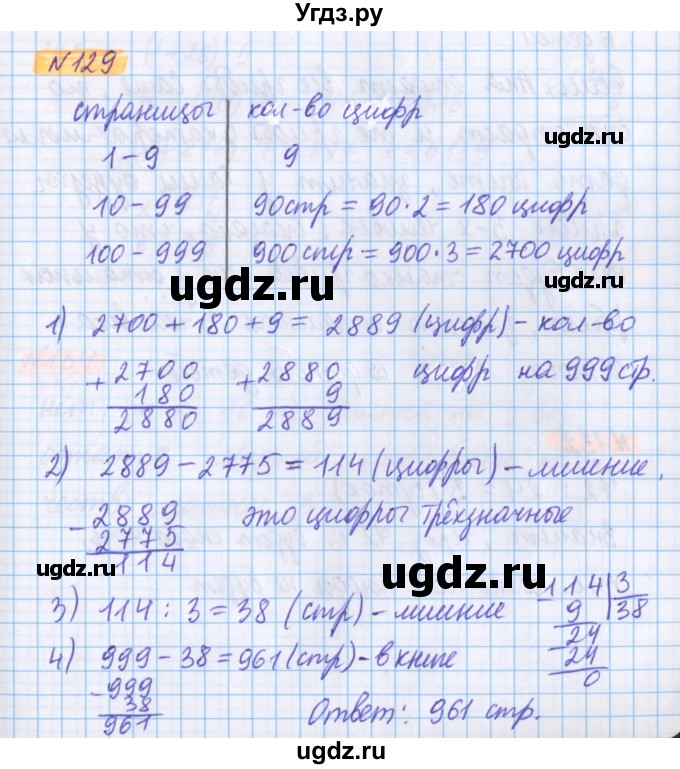 Угдз.ру
N129
страницы | кол-во цифр
1-9 | 9
10-99 | 90стр = 90·2 = 180 цифр
100-999 | 900 стр = 900·3 = 2700 цифр
ugdz.ru
ugdz.ru
1) 2700+180+9 = 2889 (цифр) - кол-во
цифр на 999 стр.
+2700
180
2880
+2880
9
2889
ugdz.ru
2) 2889-2775=114 (цифры) - лишние.
это цифры трёхзначные
-2889
2775
114
ugdz.ru
ugdz.ru
ugdz.ru
3) 114:3=38 (стр) - лишние
-114|3
9 |38
-24
24
0
4) 999-38=961 (стр) - в книге
-999
38
961
Ответ: 961 стр.
ugdz.ru
ugdz.ru